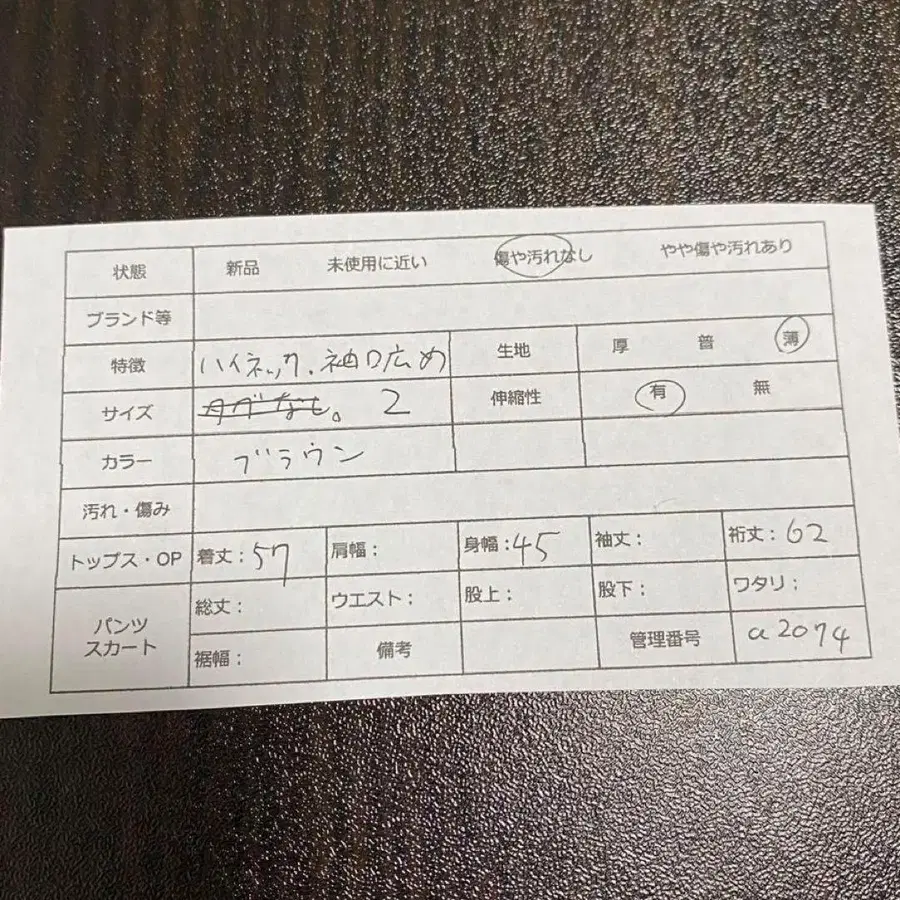 状態 新品 未使用に近い 傷や汚れなし やや傷や汚れあり
ブランド等
特徴 ハイネック.袖口広め 生地 厚 普 薄
サイズ タグなし。 2 伸縮性 有 無
カラー ブラウン
汚れ・傷み
トップス・OP 着丈:57 肩幅: 身幅:45 袖丈: 裄丈:62
パンツ スカート 総丈: ウエスト: 股上: 股下: ワタリ:
裾幅: 備考 管理番号 a2074